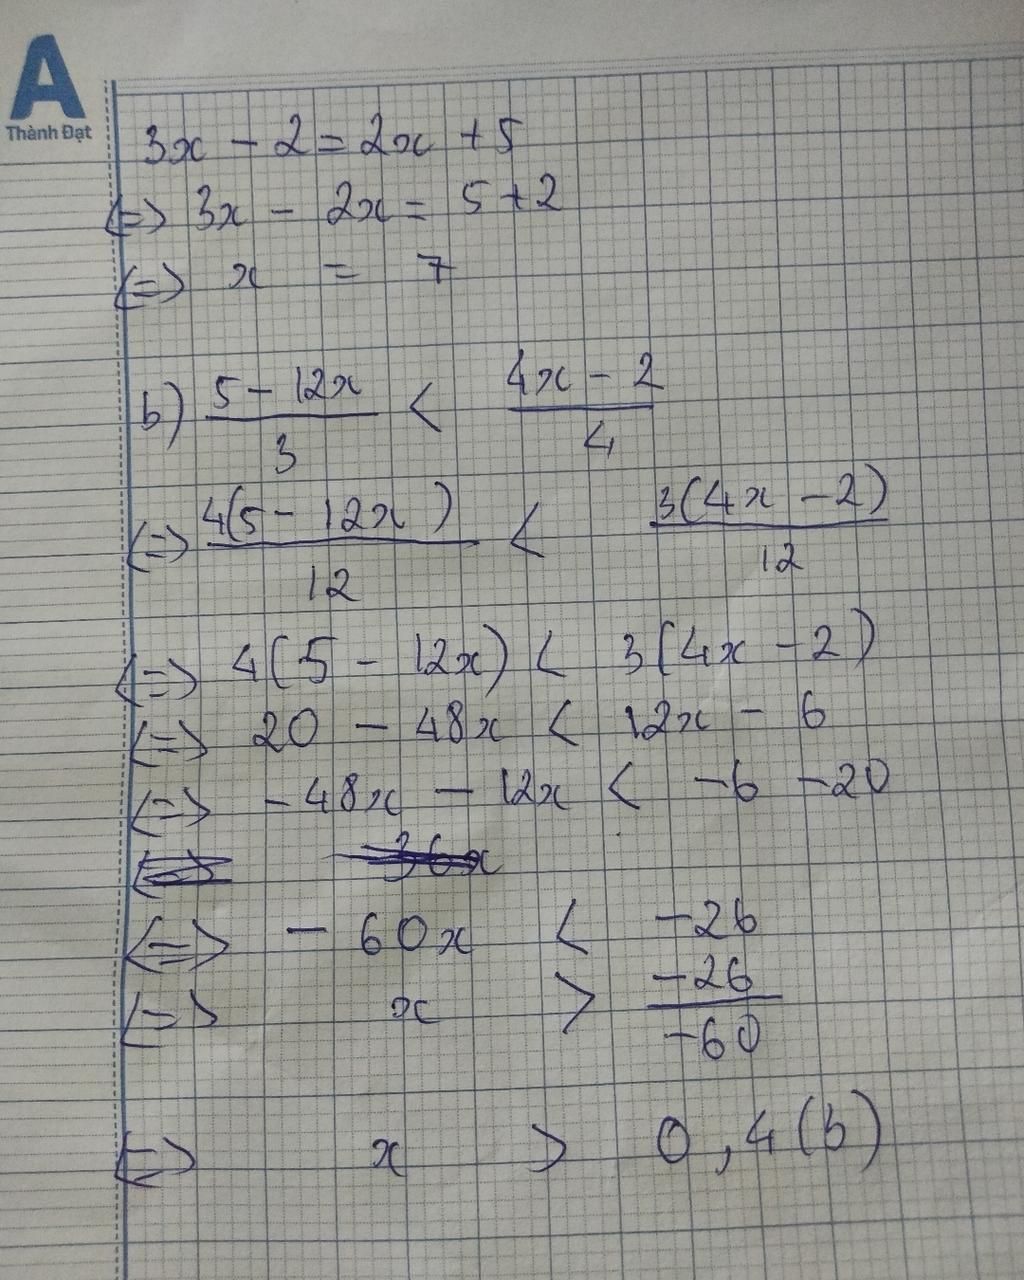 A
Thành Đạt
3x - 2 = 2x + 5
<=> 3x - 2x = 5 + 2
<=> x = 7
b) (5 - 12x)/3 < (4x - 2)/4
<=> 4(5 - 12x)/12 < 3(4x - 2)/12
<=> 4(5 - 12x) < 3(4x - 2)
<=> 20 - 48x < 12x - 6
<=> -48x - 12x < -6 -20
<=> -36x
<=> -60x < -26
<=> x > -26/-60
<=> x > 0,4(b)